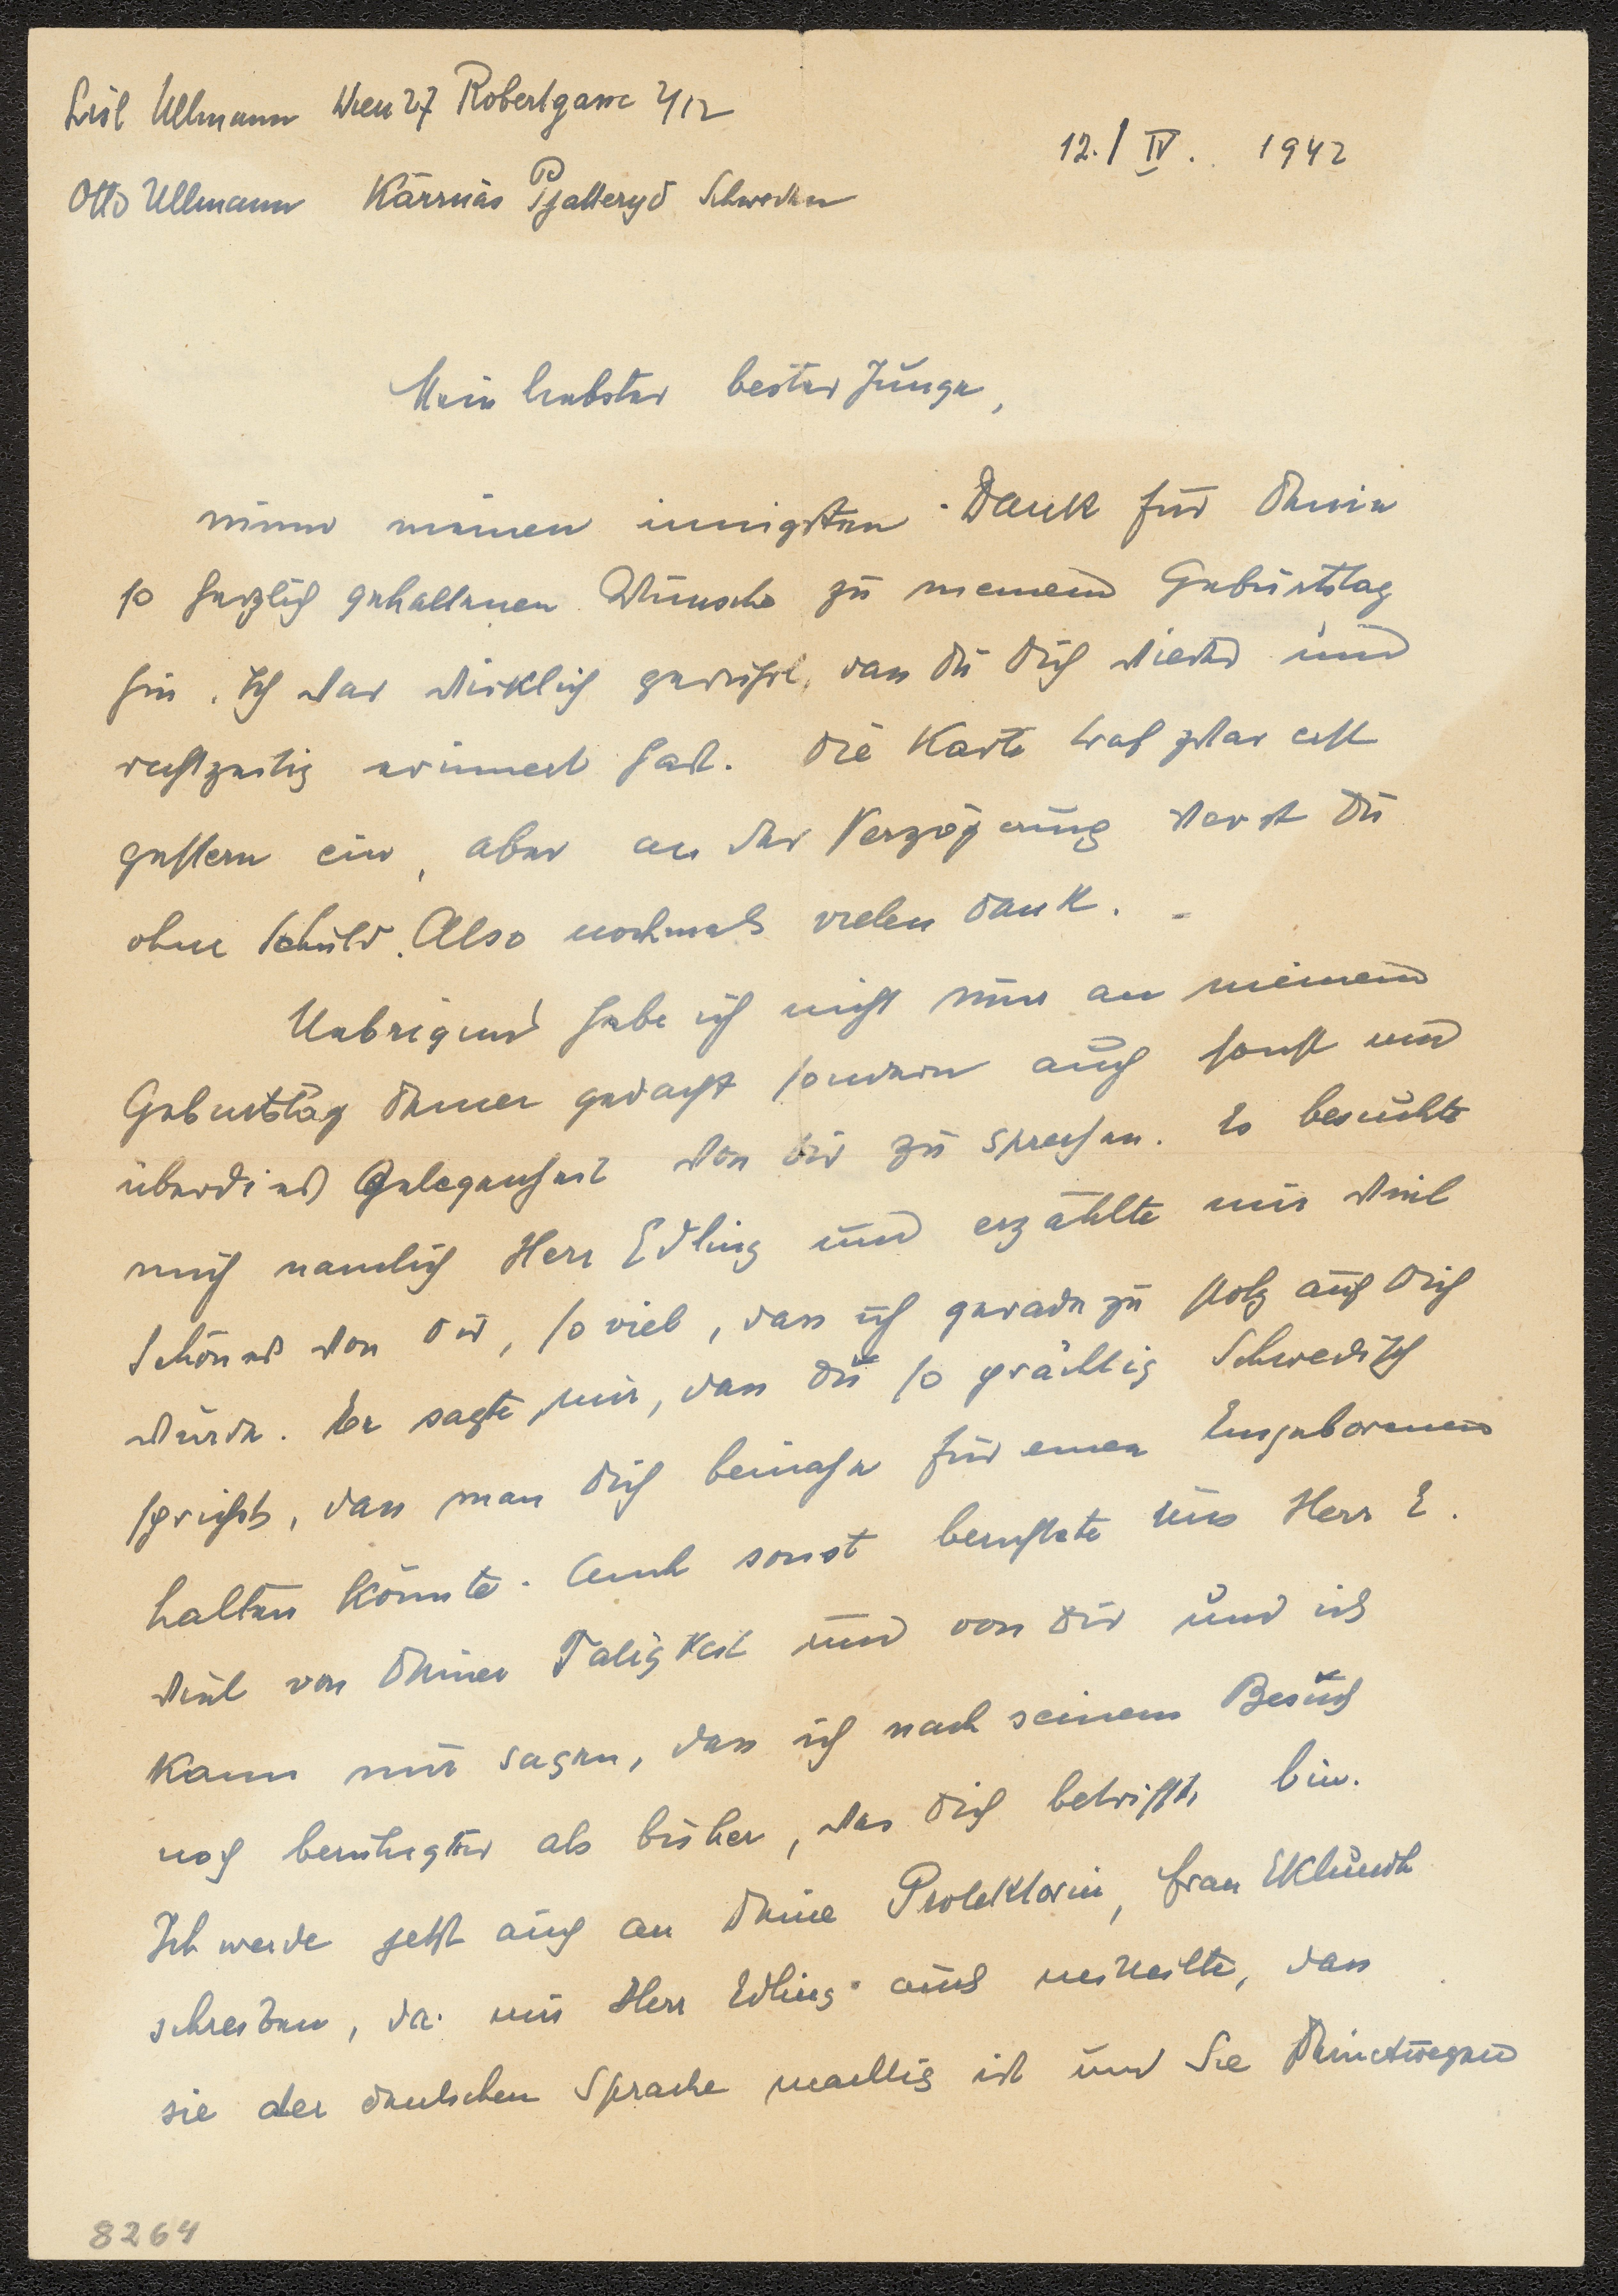 Lisl Ullmann Wien 27 Robertgasse 2/12
12./IV. 1942
Otto Ullmann Kärrnäs Pjätteryd Schweden
Mein liebster bester Junge,
nimm meinen innigsten Dank für Deine
so herzlich gehaltenen Wünsche zu meinem Geburtstag
hin. Ich war wirklich gerührt, dass Du Dich wieder und
rechtzeitig erinnert hast. Die Karte traf zwar erst
gestern ein, aber an der Verzögerung warst Du
ohne Schuld. Also nochmals vielen Dank. -
Uebrigens habe ich nicht nur an meinem
Geburtstag Deiner gedacht sondern auch sonst und
überdies Gelegenheit von Dir zu sprechen. Es besuchte
mich nämlich Herr Edling und erzählte mir viel
Schönes von Dir, so viel, dass ich geradezu stolz auf Dich
wurde. Er sagte mir, dass Du so prächtig Schwedisch
sprichst, dass man Dich beinahe für einen Eingeborenen
halten könnte. Auch sonst berichtete uns Herr E.
viel von Deiner Tätigkeit und von Dir und ich
kann nur sagen, dass ich nach seinem Besuch
noch beruhigter als bisher, was Dich betrifft, bin.
Ich werde jetzt auch an Deine Protektorin, Frau Eklundh
schreiben, da mir Herr Edling auch mitteilte, dass
sie der deutschen Sprache mächtig ist und Sie Deinetwegen
8264